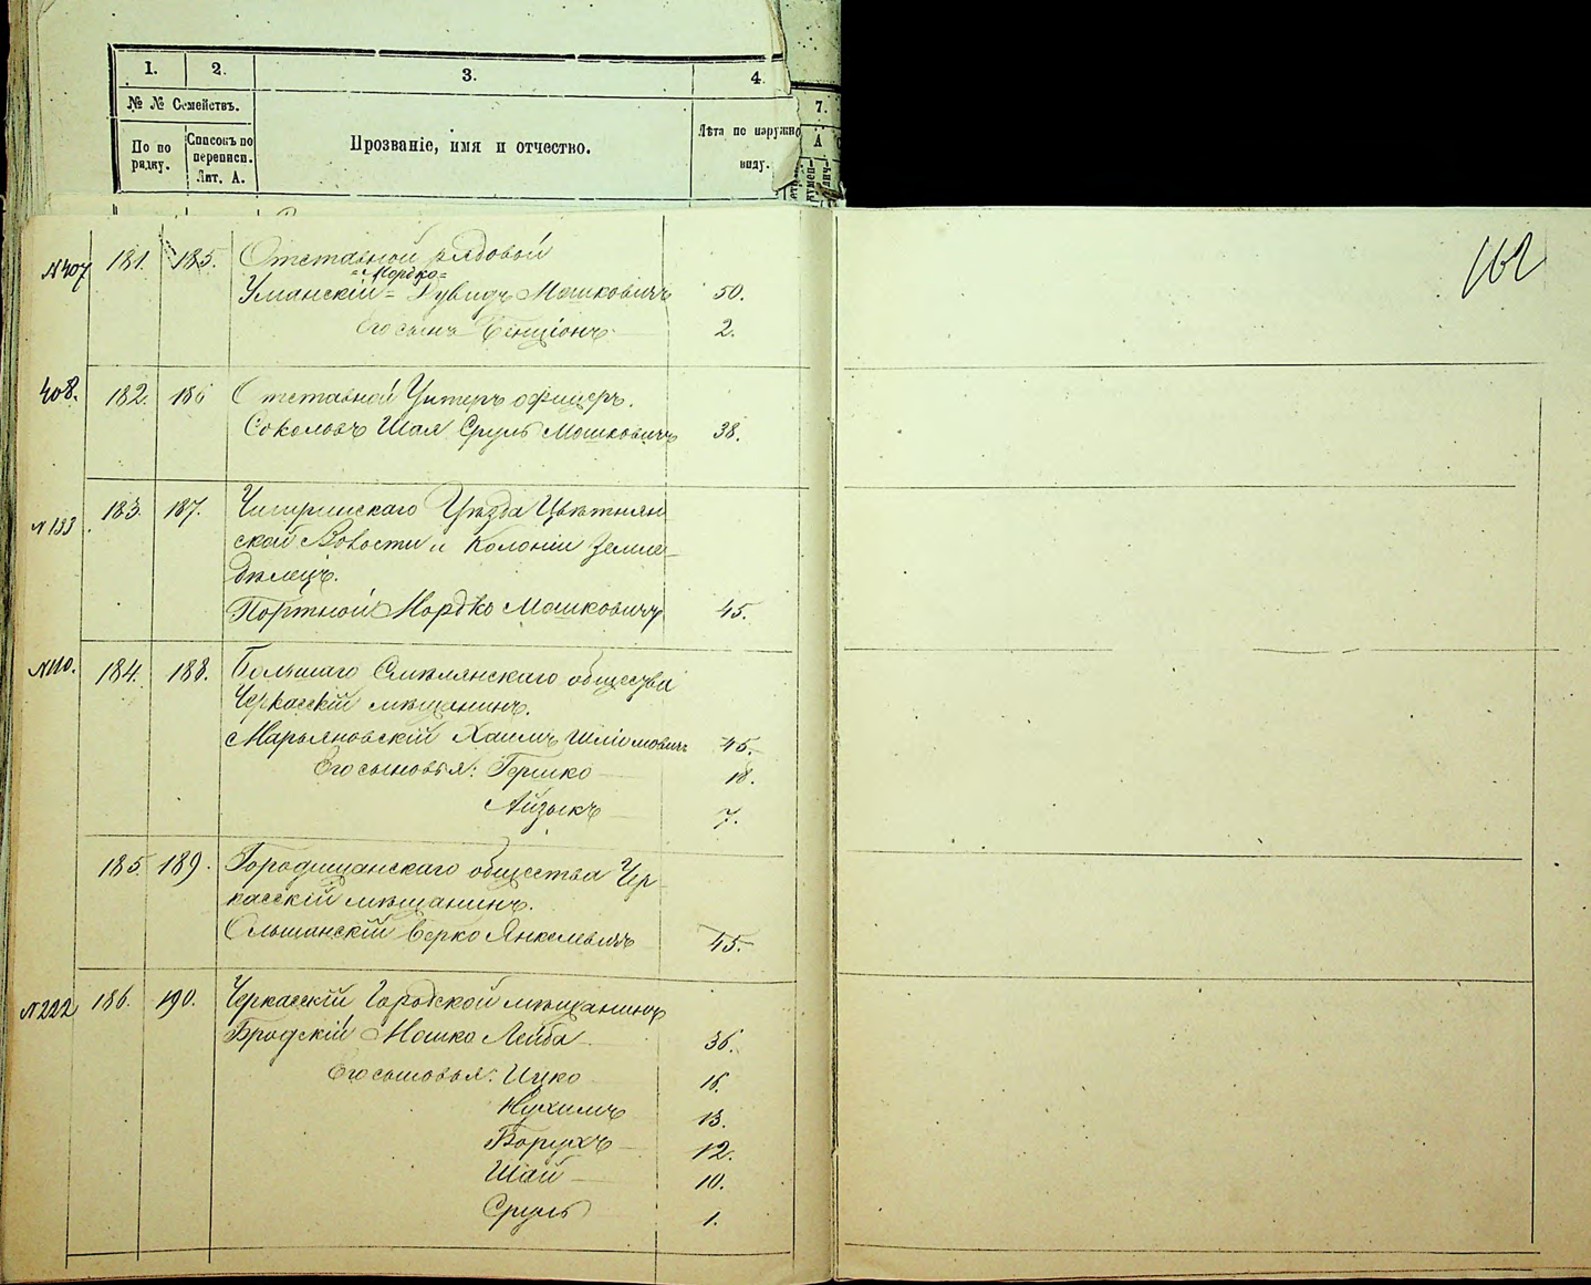 1. 2. 3. 4.
№ № Семействъ.
По по
рядку.
Списокъ по
переписи.
Лит. А.
Прозваніе, имя и отчество.
Лѣта по наружно
виду.
7.
А
162
N 407 181. 185. Отставной рядовой
=Мордко=
Уманскій= Дувидъ Мошковичъ 50.
Его сынъ Бенціонъ 2.
408. 182. 186 Отставной Унтеръ офицеръ.
Соколовъ Шая Сруль Мошковичъ 38.
N 133 183. 187. Чигиринскаго Уѣзда Цвѣтнян
ской Волости и Колоніи Земле-
дѣлецъ.
Портной Мордко Мошковичъ 45.
N 110. 184. 188. Большаго Смѣлянскаго общества
Черкасскій мѣщанинъ.
Марьяновскій Хаимъ Шліомовичъ 45.
Его сыновья: Гершко 18.
Айзыкъ 7.
185 189. Городищанскаго общества Чер
касскій мѣщанинъ.
Ольшанскій Берко Янкелевичъ 45.
N 222 186. 190. Черкасскій Городской мѣщанинъ
Бродскій Мошко Лейба 36.
Его сыновья: Ицко 16.
Нухимъ 13.
Борухъ 12.
Шай 10.
Сруль 1.